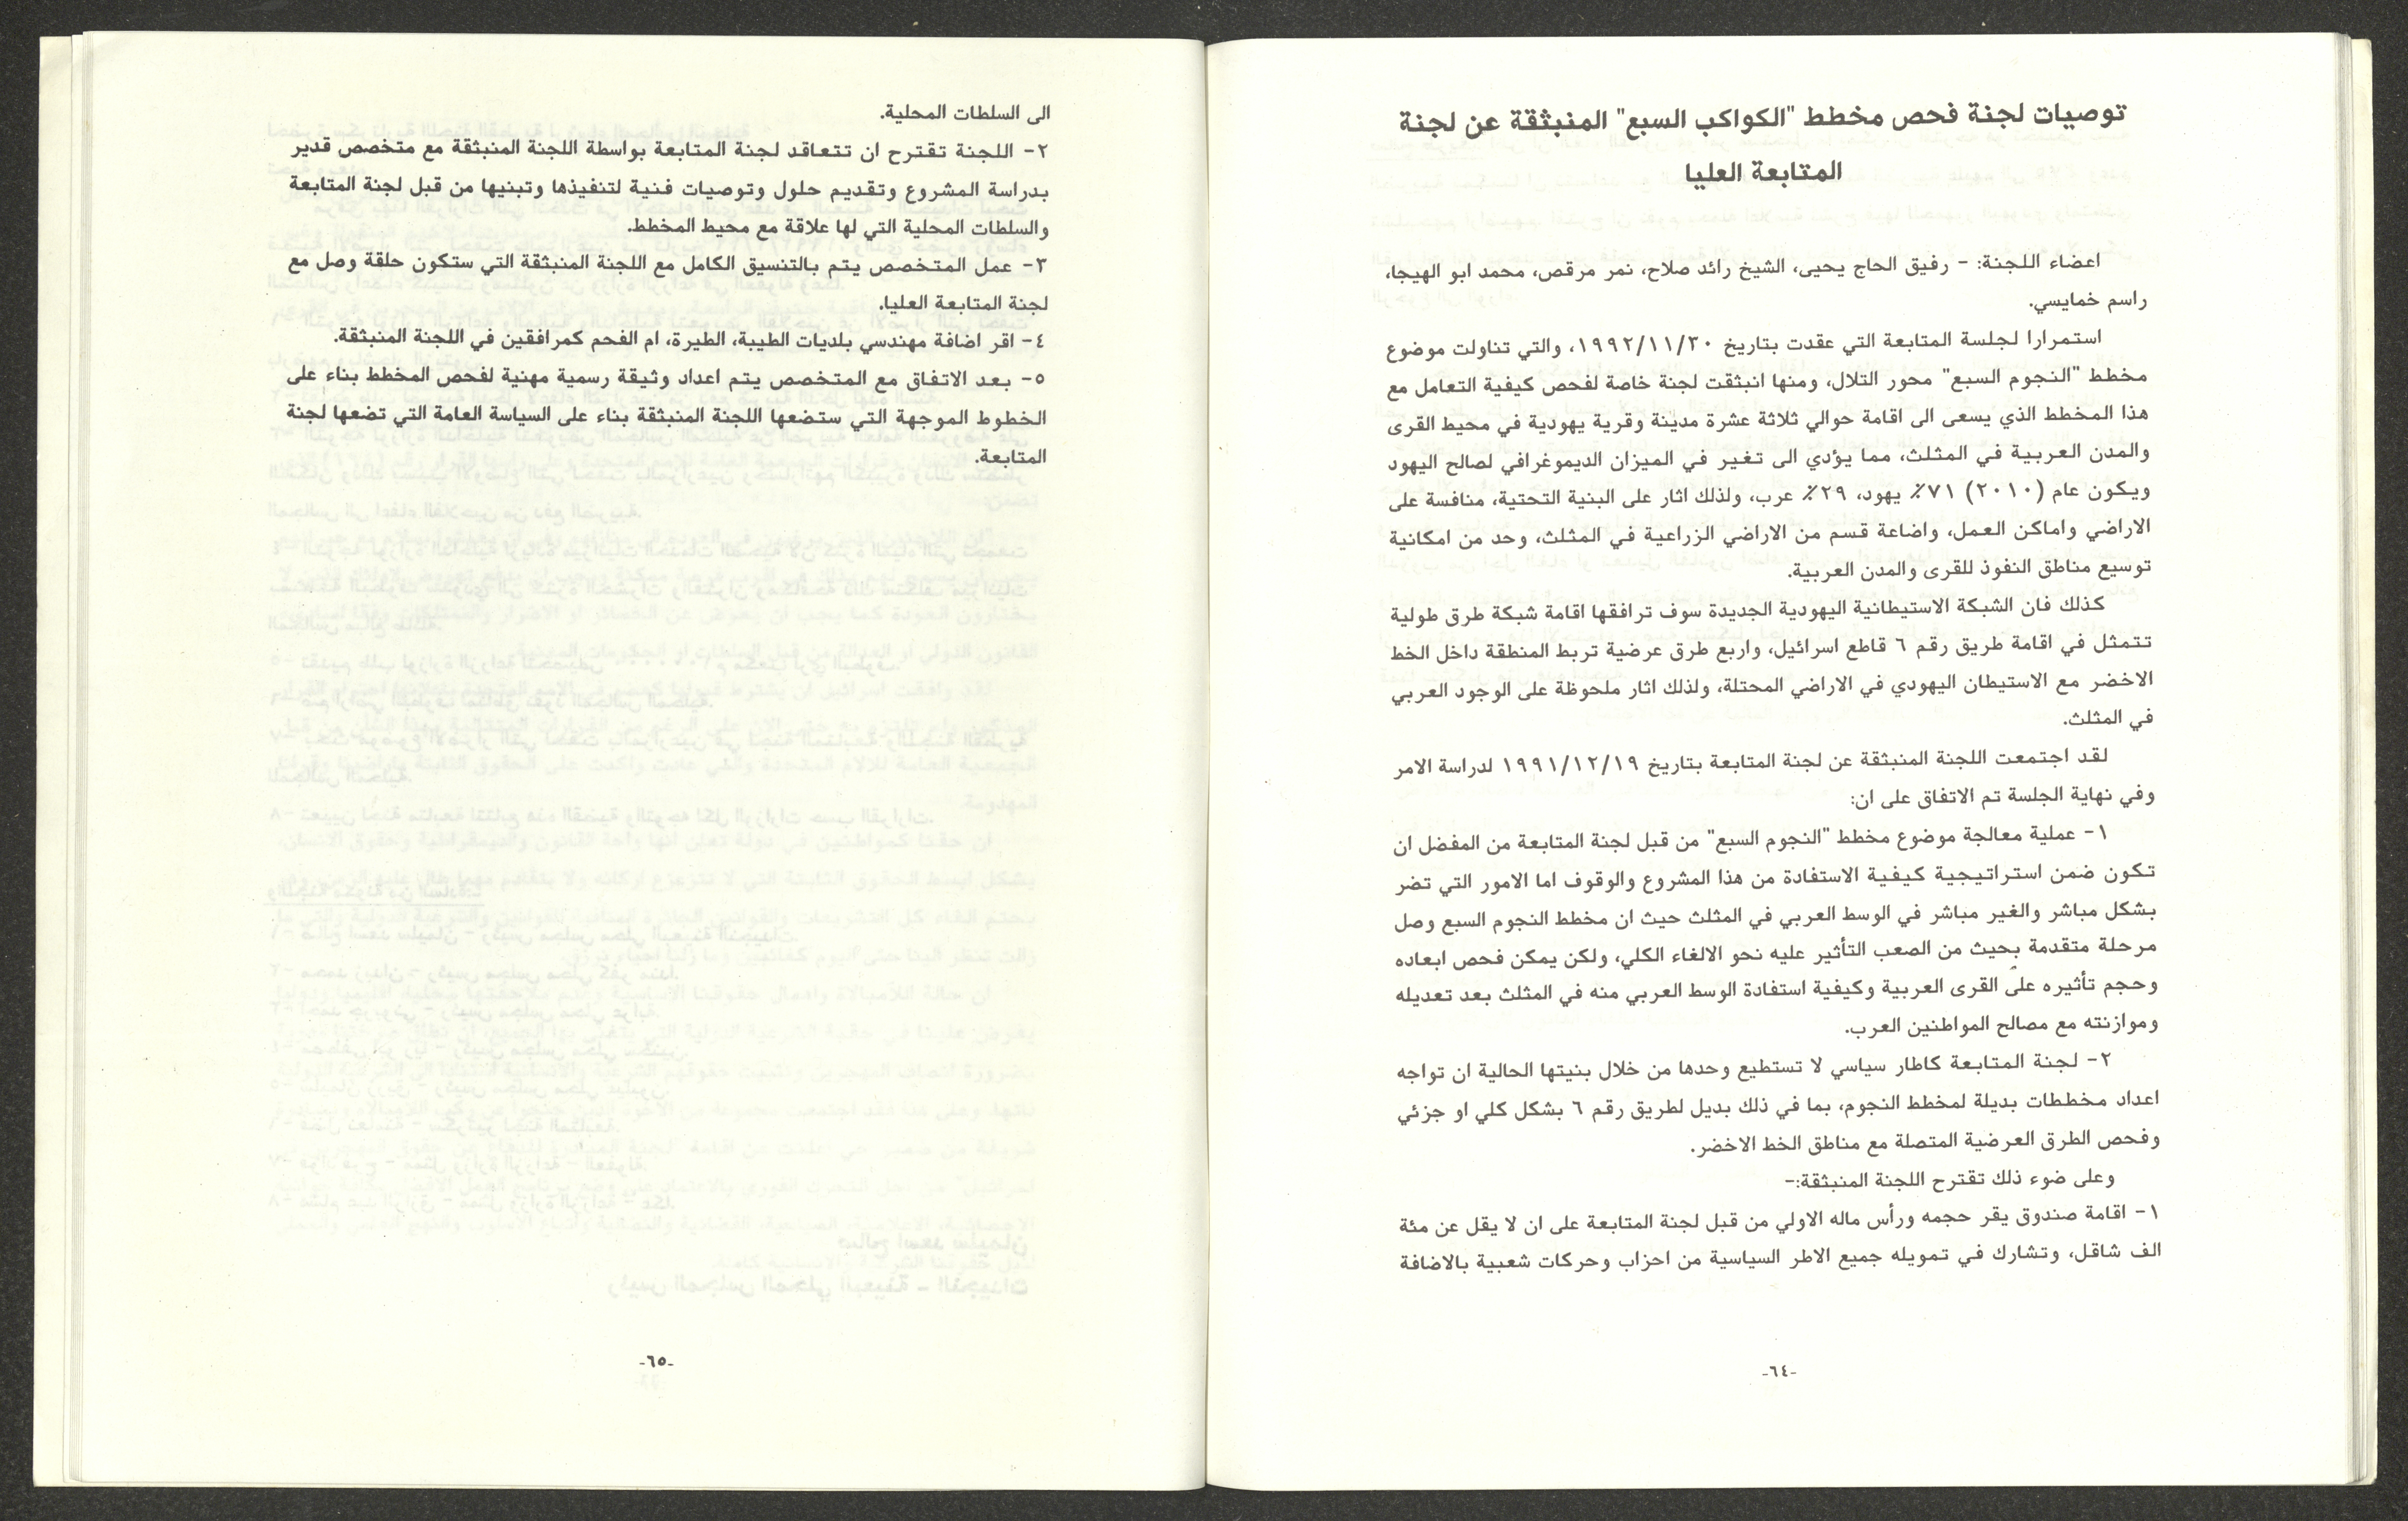 توصيات لجنة فحص مخطط "الكواكب السبع" المنبثقة عن لجنة
المتابعة العليا
اعضاء اللجنة: - رفيق الحاج يحيى، الشيخ رائد صلاح، نمر مرقص، محمد ابو الهيجا،
راسم خمايسي.
استمرارا لجلسة المتابعة التي عقدت بتاريخ ١٩٩٢/١١/٣٠، والتي تناولت موضوع
مخطط "النجوم السبع" محور التلال، ومنها انبثقت لجنة خاصة لفحص كيفية التعامل مع
هذا المخطط الذي يسعى الى اقامة حوالي ثلاثة عشرة مدينة وقرية يهودية في محيط القرى
والمدن العربية في المثلث، مما يؤدي الى تغير في الميزان الديموغرافي لصالح اليهود
ويكون عام (٢٠١٠) ٧١٪ يهود، ٢٩٪ عرب، ولذلك اثار على البنية التحتية، منافسة على
الاراضي واماكن العمل، واضاعة قسم من الاراضي الزراعية في المثلث، وحد من امكانية
توسيع مناطق النفوذ للقرى والمدن العربية.
كذلك فان الشبكة الاستيطانية اليهودية الجديدة سوف ترافقها اقامة شبكة طرق طولية
تتمثل في اقامة طريق رقم ٦ قاطع اسرائيل، واربع طرق عرضية تربط المنطقة داخل الخط
الاخضر مع الاستيطان اليهودي في الاراضي المحتلة، ولذلك اثار ملحوظة على الوجود العربي
في المثلث.
لقد اجتمعت اللجنة المنبثقة عن لجنة المتابعة بتاريخ ١٩٩١/١٢/١٩ لدراسة الامر
وفي نهاية الجلسة تم الاتفاق على ان:
١- عملية معالجة موضوع مخطط "النجوم السبع" من قبل لجنة المتابعة من المفضل ان
تكون ضمن استراتيجية كيفية الاستفادة من هذا المشروع والوقوف اما الامور التي تضر
بشكل مباشر والغير مباشر في الوسط العربي في المثلث حيث ان مخطط النجوم السبع وصل
مرحلة متقدمة بحيث من الصعب التأثير عليه نحو الالغاء الكلي، ولكن يمكن فحص ابعاده
وحجم تأثيره على القرى العربية وكيفية استفادة الوسط العربي منه في المثلث بعد تعديله
وموازنته مع مصالح المواطنين العرب.
٢- لجنة المتابعة كاطار سياسي لا تستطيع وحدها من خلال بنيتها الحالية ان تواجه
اعداد مخططات بديلة لمخطط النجوم، بما في ذلك بديل لطريق رقم ٦ بشكل كلي او جزئي
وفحص الطرق العرضية المتصلة مع مناطق الخط الاخضر.
وعلى ضوء ذلك تقترح اللجنة المنبثقة:-
١- اقامة صندوق يقر حجمه ورأس ماله الاولي من قبل لجنة المتابعة على ان لا يقل عن مئة
الف شاقل، وتشارك في تمويله جميع الاطر السياسية من احزاب وحركات شعبية بالاضافة
-٦٤-
الى السلطات المحلية.
٢- اللجنة تقترح ان تتعاقد لجنة المتابعة بواسطة اللجنة المنبثقة مع متخصص قدير
بدراسة المشروع وتقديم حلول وتوصيات فنية لتنفيذها وتبنيها من قبل لجنة المتابعة
والسلطات المحلية التي لها علاقة مع محيط المخطط.
٣- عمل المتخصص يتم بالتنسيق الكامل مع اللجنة المنبثقة التي ستكون حلقة وصل مع
لجنة المتابعة العليا.
٤- اقر اضافة مهندسي بلديات الطيبة، الطيرة، ام الفحم كمرافقين في اللجنة المنبثقة.
٥- بعد الاتفاق مع المتخصص يتم اعداد وثيقة رسمية مهنية لفحص المخطط بناء على
الخطوط الموجهة التي ستضعها اللجنة المنبثقة بناء على السياسة العامة التي تضعها لجنة
المتابعة.
-٦٥-